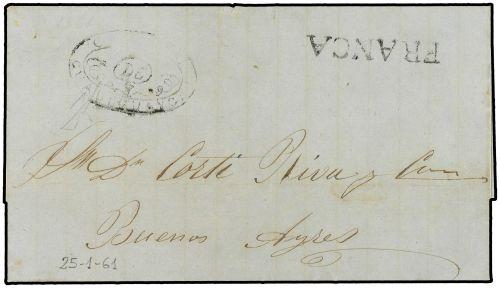 FRANCA
DE
Sres Dn Corti Riva y Com
Buenos Ayres
25-1-61